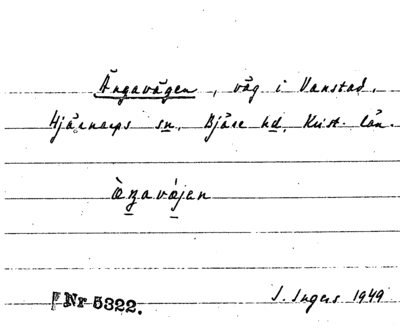 Ängavägen, väg i Vanstad,
Hjärnarps sn, Bjäre hd, Krist. län.
Nr 5322.
I. Ingers 1949